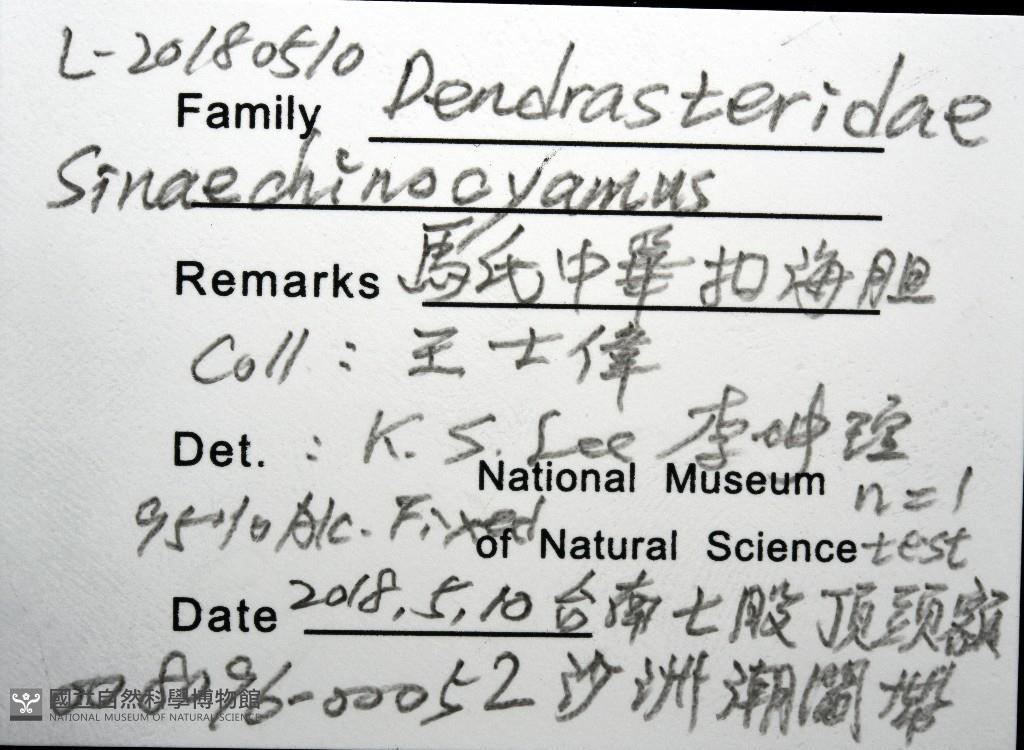 L-20180510
Family Dendrasteridae
Sinaechinocyamus
Remarks 馬氏中華扣海胆
Coll : 王士偉
Det. : K. S. Lee 李坤瑄
National Museum n=1
95% Alc. Fixed
of Natural Science test
Date 2018.5.10 台南七股頂頭額
-00052 沙洲潮間帶
國立自然科學博物館
NATIONAL MUSEUM OF NATURAL SCIENCE